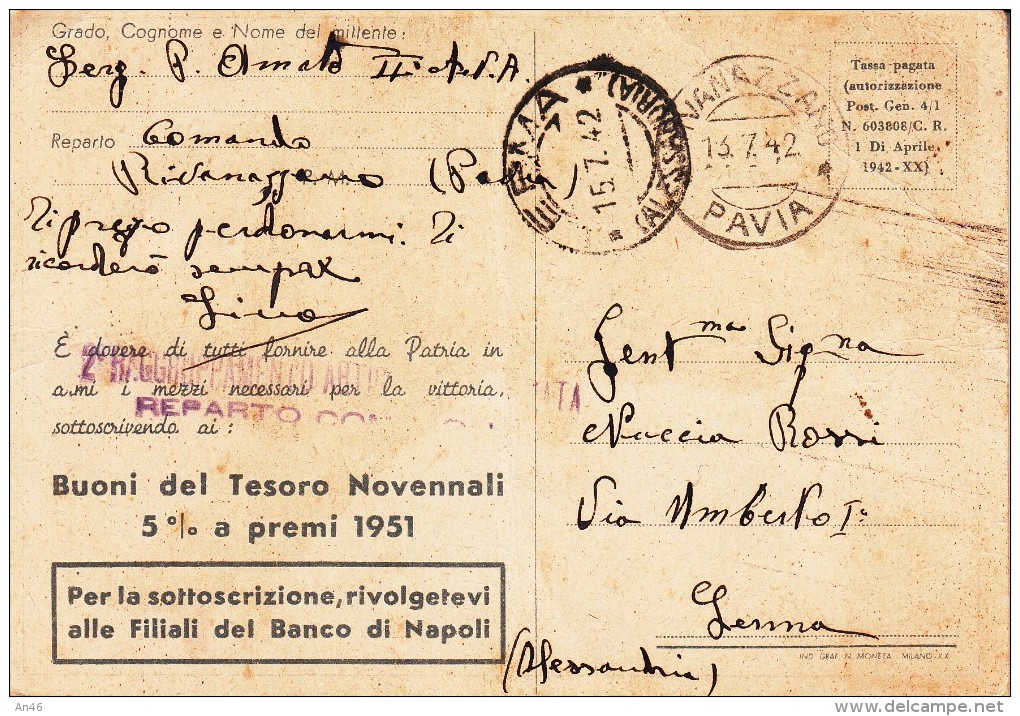 Grado, Cognome e Nome del mittente:
Serg. P. Amato II
Reparto Comando
Rivanazzano (Pavia)
Ti prego perdonarmi. Ti
ricorderò
È dovere di tutti fornire alla Patria in
armi i mezzi necessari per la vittoria,
sottoscrivendo ai:
2° RAGGRUPPAMENTO
REPARTO
Buoni del Tesoro Novennali
5% a premi 1951
Per la sottoscrizione, rivolgetevi
alle Filiali del Banco di Napoli
15.7.42
(ALESSANDRIA)
RIVANAZZANO
13.7.42
PAVIA
Tassa pagata
(autorizzazione
Post. Gen. 4/1
N. 603808/C. R.
1 Di Aprile
1942-XX)
Gent ma Signa
Rossi
Via Umberto I°
Lerma
(Alessandria)
IND. GRAF. N. MONETA - MILANO-XX
An46
www.delcampe.net